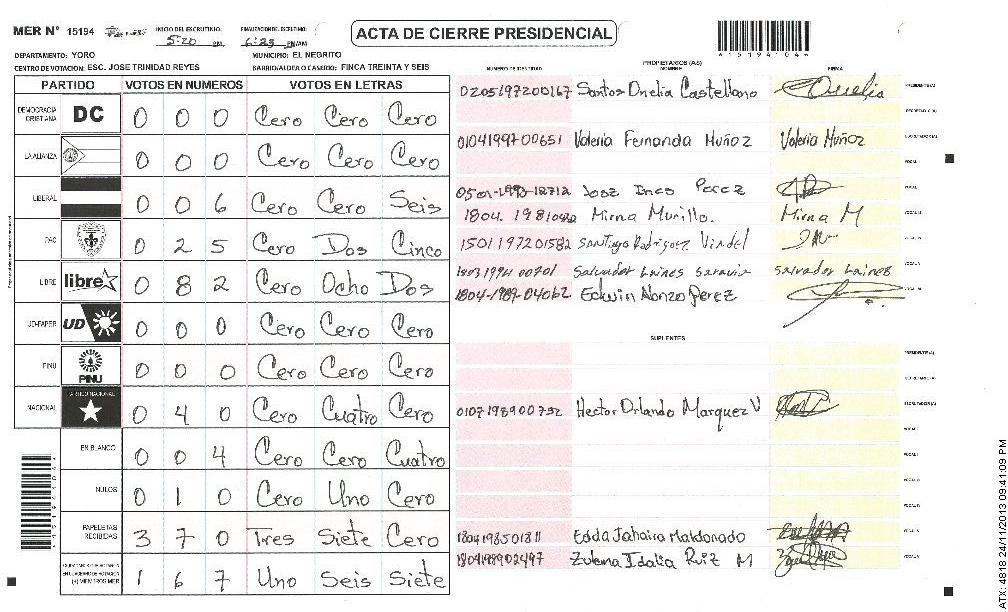 MER Nº 15194
INICIO DEL ESCRUTINIO.
5:20 PM.
6:23 PM/AM
ACTA DE CIERRE PRESIDENCIAL
4 1 5 1 9 4 1 0 4 4
DEPARTAMENTO: YORO
MUNICIPIO: EL NEGRITO
CENTRO DE VOTACION: ESC. JOSE TRINIDAD REYES
BARRIO/ALDEA O CASERIO: FINCA TREINTA Y SEIS
PARTIDO VOTOS EN NUMEROS VOTOS EN LETRAS
DEMOCRACIA CRISTIANA DC 0 0 0 Cero Cero Cero
LA ALIANZA 0 0 0 Cero Cero Cero
LIBERAL 0 0 6 Cero Cero Seis
PAC 0 2 5 Cero Dos Cinco
LIBRE libre 0 8 2 Cero Ocho Dos
UD-FAPER UD 0 0 0 Cero Cero Cero
PINU PINU 0 0 0 Cero Cero Cero
NACIONAL PARTIDO NACIONAL 0 4 0 Cero Cuatro Cero
EN BLANCO 0 0 4 Cero Cero Cuatro
NULOS 0 1 0 Cero Uno Cero
PAPELETAS RECIBIDAS 3 7 0 Tres Siete Cero
1 6 7 Uno Seis Siete
PROPIETARIOS (AS)
NUMERO DE IDENTIDAD NOMBRE FIRMA
0205197200167 Santos Onelia Castellano Onelia PRESIDENTE (A)
SECRETARIO (A)
0104199700651 Valeria Fernanda Muñoz Valeria Muñoz ESCRUTADOR (A)
VOCAL I
Jose Ines Perez
Mirna Murillo. Mirna M
1501197201582 Santiago Rodriguez Vindel
Salvador Laines Saravia Salvador Laines
1804-1989-04062 Edwin Alonzo Perez
SUPLENTES
PRESIDENTE (A)
SECRETARIO (A)
0107198900732 Hector Orlando Marquez V ESCRUTADOR (A)
VOCAL I
VOCAL II
VOCAL III
VOCAL IV
1804198501811 Edda Jahaira Maldonado
1804198902497 Zulema Idalia Ruiz M
ATX: 4818 24/11/2013 09:41:09 PM